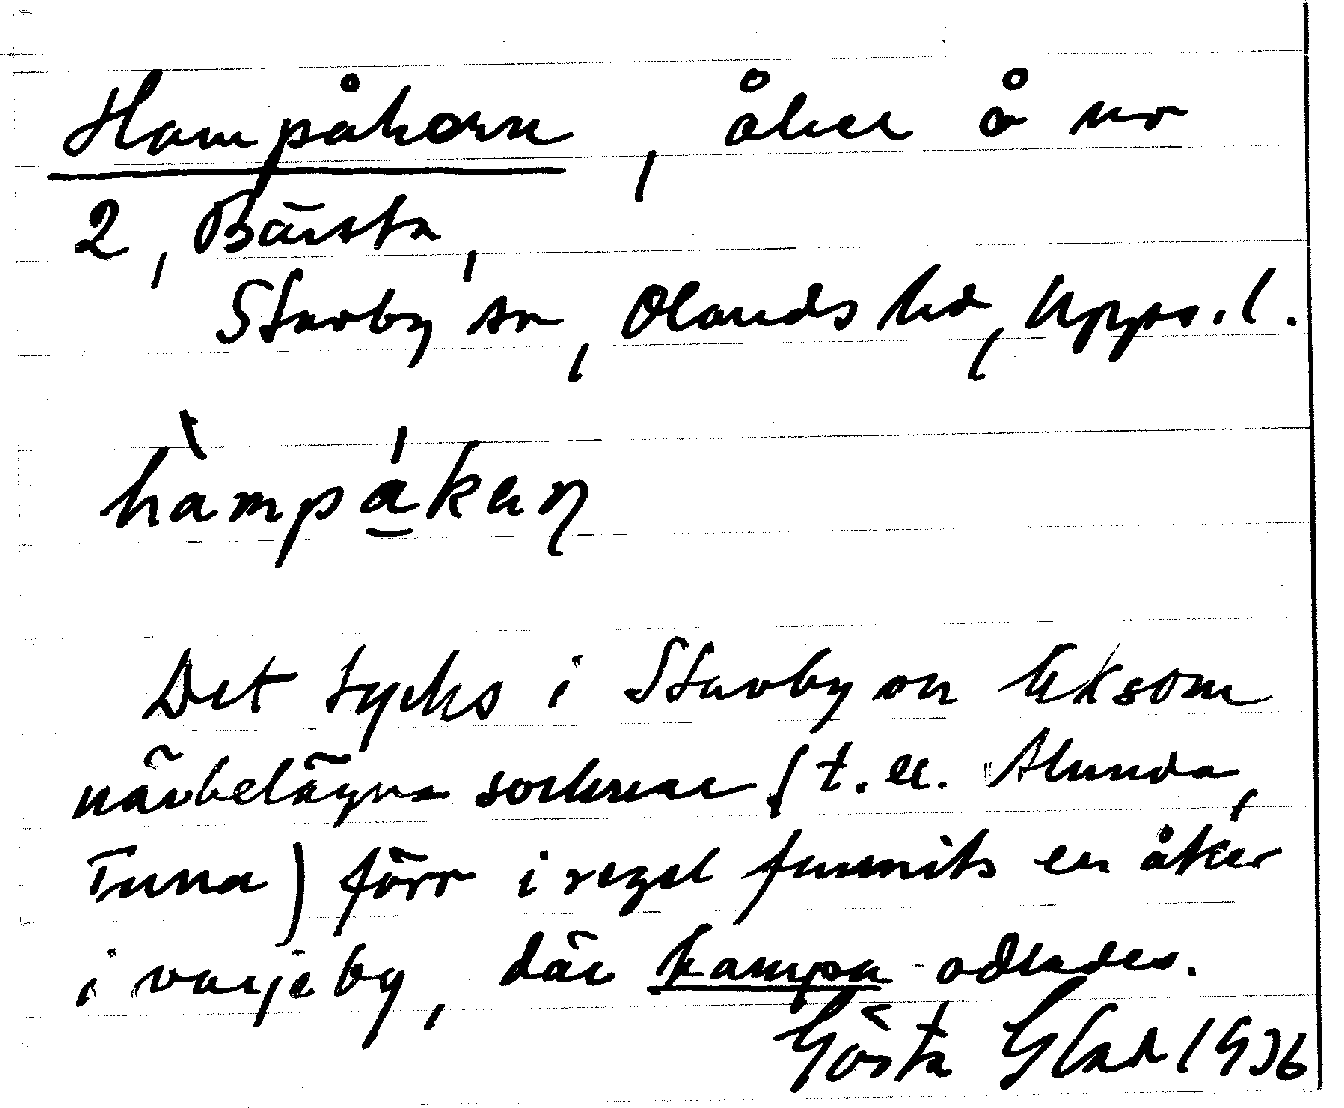 Hampåkern, åker å nr
2, Bärsta,
Stavby sn, Olands hd, Upps. l.
hàmpákaɳ
Det tycks i Stavby sn liksom
närbelägna socknar (t. ex. Alunda,
Tuna) förr i regel funnits en åker
i varje by, där hampa odlades.
Gösta Glad 1936